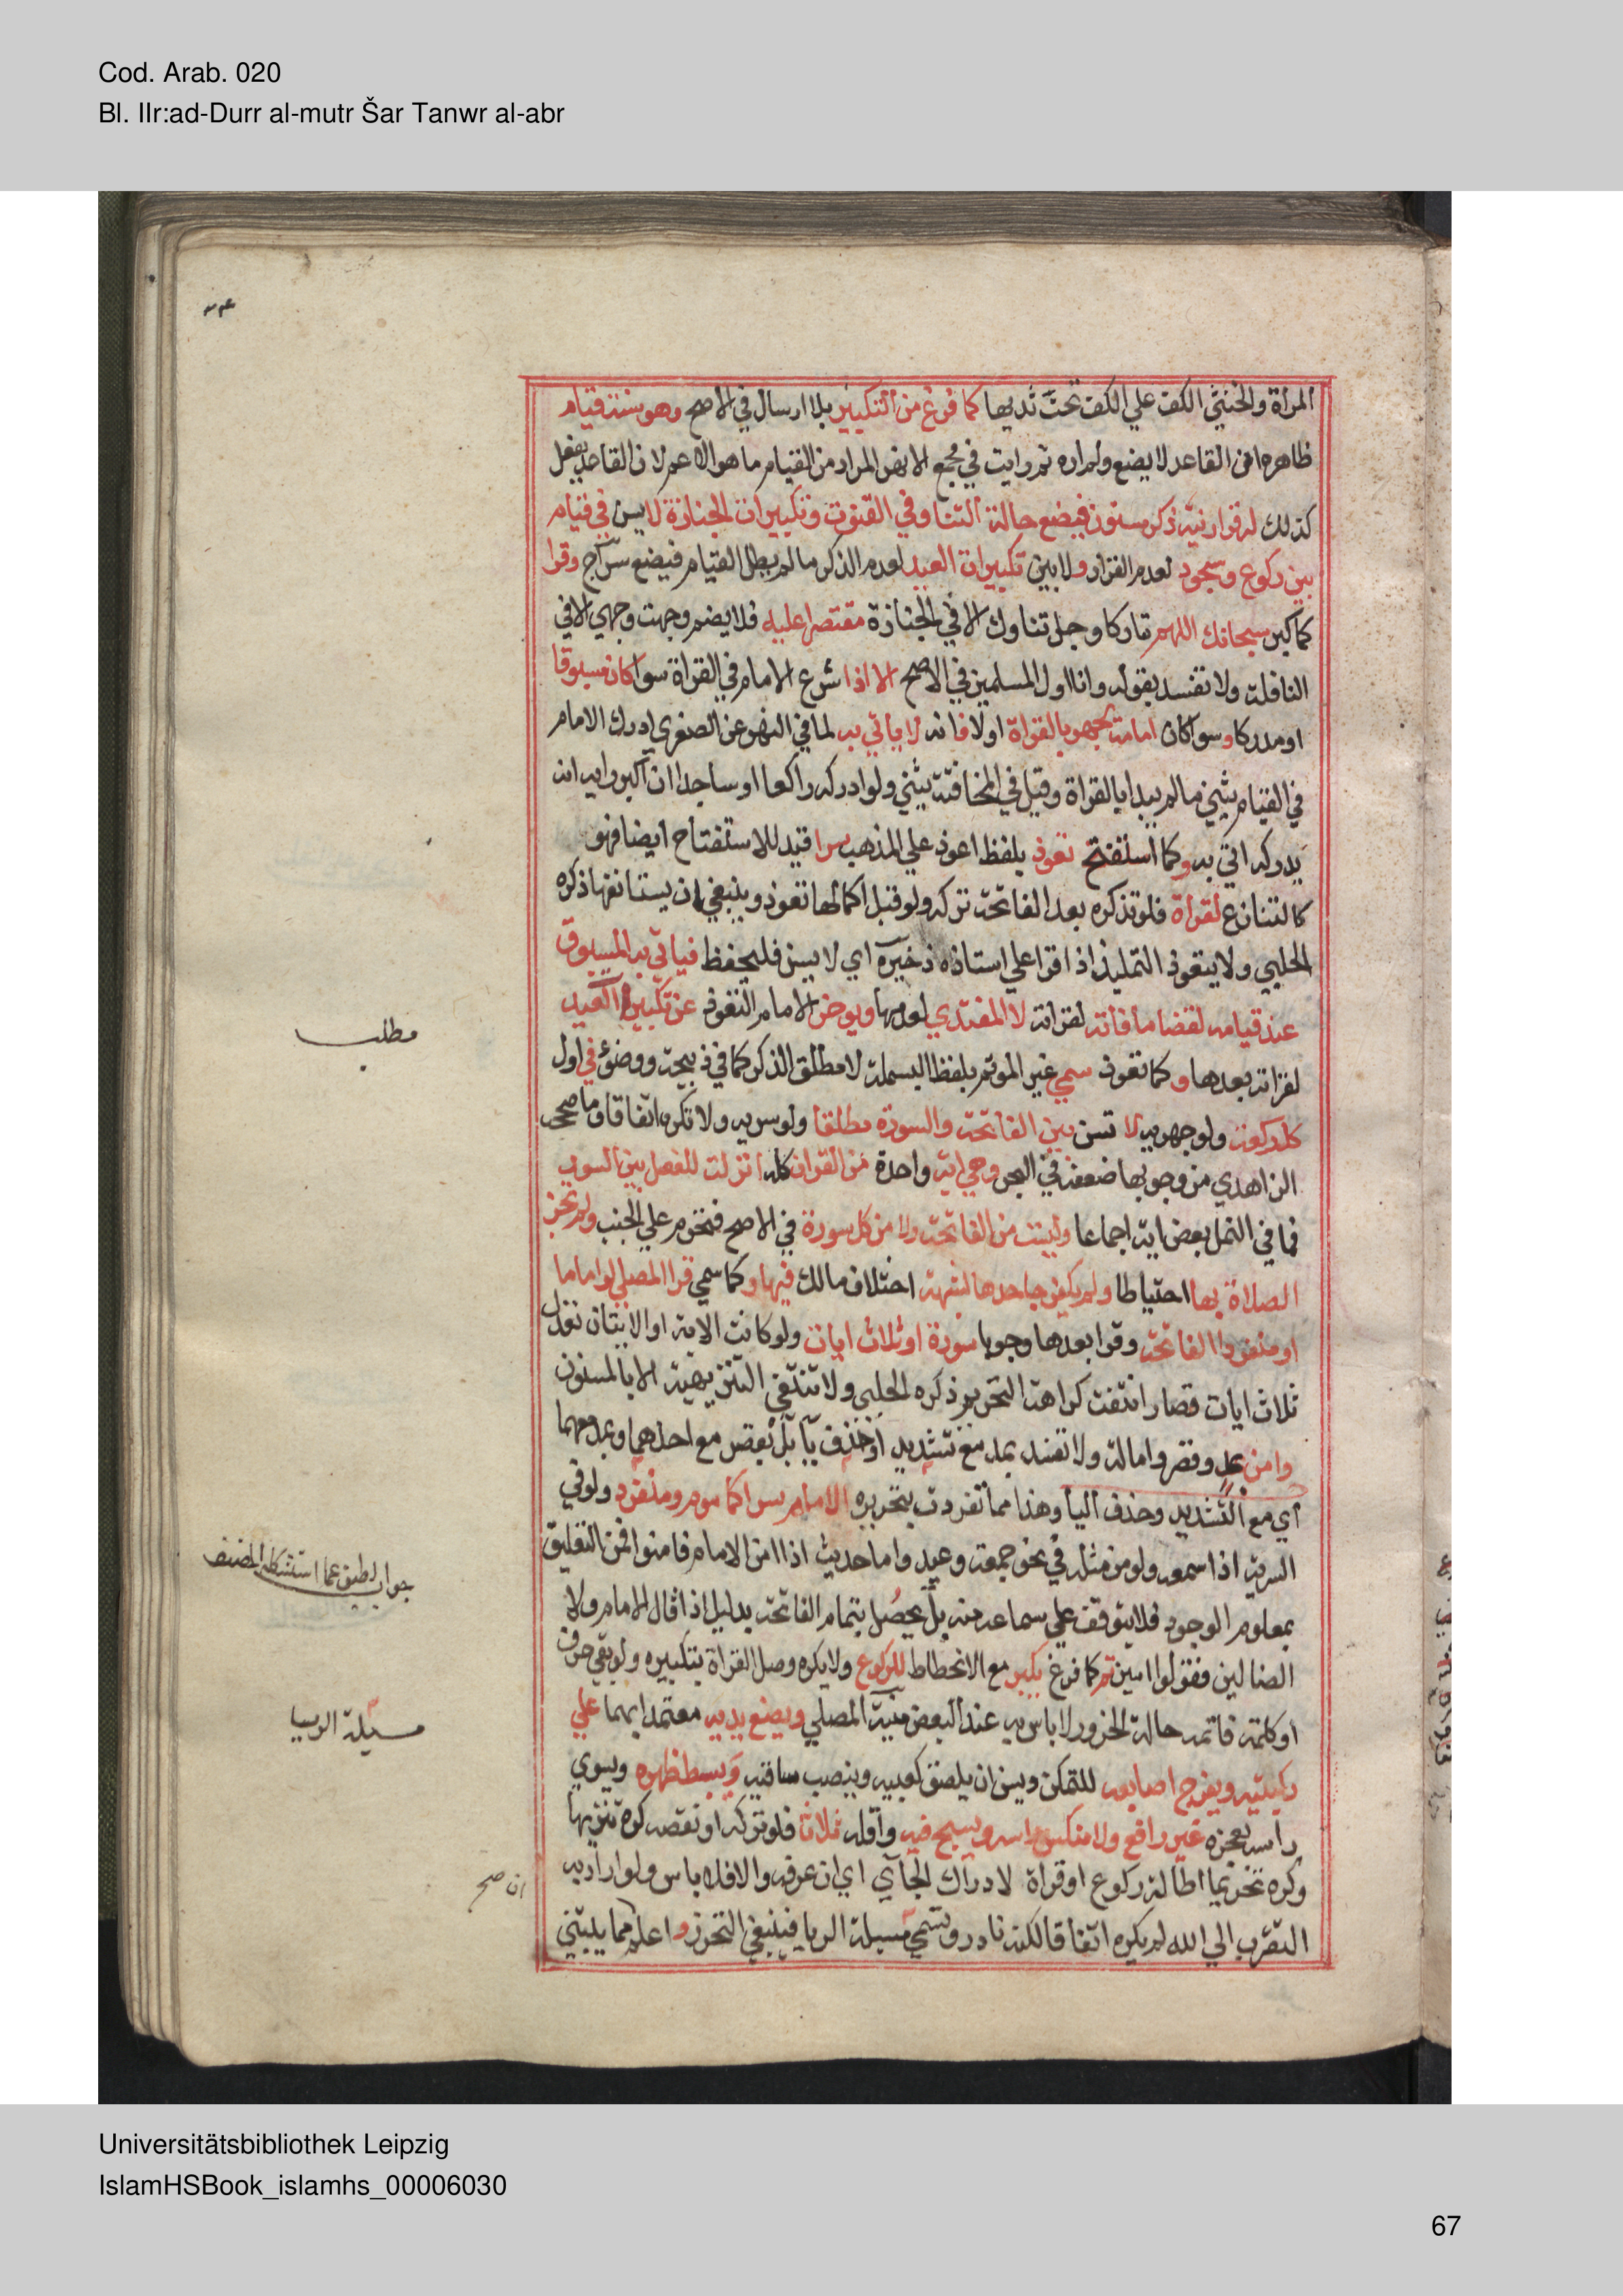 Cod. Arab. 020
Bl. IIr:ad-Durr al-mutr Šar Tanwr al-abr
المراة والخنثي الكف علي الكف تحت ثديها كما فرغ من التكبير بلا ارسال في الاصح وهو سنة قيام
ظاهره ان القاعد لا يضع ولم اره ثم رايت في مجمع الانهر المراد من القيام ما هو الاعم لان القاعد يفعل
كذلك له قرار فيه ذكر مسنون فيضع حالة الثنا وفي القنوت وتكبيرات الجنازة لا يسن في قيام
بين ركوع وسجود لعدم القرار ولا بين تكبيرات العيد لعدم الذكر ما لم يطل القيام فيضع سراج وقرا
كما كبر سبحانك اللهم تاركا وجل ثناوك الا في الجنازة مقتصرا عليه فلا يضم وجهت وجهي الا في
النافلة ولا تفسد بقوله وانا اول المسلمين في الاصح الا اذا شرع الامام في القراة سوا كان مسبوقا
او مدركا وسوا كان امامه يجهر بالقراة اولا فانه لا ياتي به لما في النهر عن الصغري ادرك الامام
في القيام يثني ما لم يبدا بالقراة وقيل في المخافتة يثني ولو ادركه راكعا او ساجدا ان اكبر رايه انه
يدركه اتي به وكما استفتح تعوذ بلفظ اعوذ علي المذهب سرا قيد للاستفتاح ايضا فهو
كالتنازع لقراة فلو تذكره بعد الفاتحة تركه ولو قبل اكمالها تعوذ وينبغي ان يستانفها ذكره
الحلبي ولا يتعوذ التلميذ اذا قرا علي استاذه ذخيرة اي لا يسن فليحفظ فياتي به المسبوق
عند قيامه لقضا ما فاته لقراته لا المقتدي لعدمها ويوخر الامام التعوذ عن تكبيرات العيد
لقراته بعدها وكما تعوذ سمي غير الموتم بلفظ البسملة لا مطلق الذكر كما في ذبيحة ووضوء في اول
كل ركعة ولو جهرية لا تسن بين الفاتحة والسورة مطلقا ولو سرية ولا تكره اتفاقا وما صححه
الزاهدي من وجوبها ضعفه في البحر وهي اية واحدة من القران كله انزلت للفصل بين السور
فما في النمل بعض اية اجماعا وليست من الفاتحة ولا من كل سورة في الاصح فتحرم علي الجنب ولم تجز
الصلاة بها احتياطا ولم يكفر جاحدها لشبهة اختلاف مالك فيها وكما سمي قرا المصلي لو اماما
او منفردا الفاتحة وقرا بعدها وجوبا سورة او ثلاث ايات ولو كانت الاية او الايتان تعدل
ثلاث ايات قصار انتفت كراهة التحريم ذكره الحلبي ولا تنتفي التنزيهية الا بالمسنون
وامن بمد وقصر وامالة ولا تفسد بمد مع تشديد او حذف يا بل بقصر مع احدهما وبمد معهما
اي مع التشديد وحذف اليا وهذا مما تفردت بتحريره الامام سرا كماموم ومنفرد ولو في
السرية اذا سمعه ولو من مثله في نحو جمعة وعيد واما حديث اذا امن الامام فامنوا فمن التعليق
بمعلوم الوجود فلا يتوقف علي سماعه منه بل يحصل بتمام الفاتحة بدليل اذا قال الامام ولا
الضالين فقولوا امين ثم كما فرغ يكبر مع الانحطاط للركوع ولا يكره وصل القراة بتكبيره ولو بقي حرف
او كلمة فاتمه حالة الخرور لا باس به عند البعض منية المصلي ويضع يديه معتمدا بهما علي
ركبتيه ويفرج اصابعه للتمكن ويسن ان يلصق كعبيه وينصب ساقيه ويبسط ظهره ويسوي
راسه بعجزه غير رافع ولا منكس راسه ويسبح فيه واقله ثلاثا فلو تركه او نقصه كره تنزيها
وكره تحريما اطالة ركوع او قراة لادراك الجاي اي ان عرفه والا فلا باس ولو اراد به
التقرب الي الله لم يكره اتفاقا لكنه نادر وتسمي مسيلة الريا فينبغي التحرز واعلم مما يبتني
مطلب
جواب لطيف عما استشكله المصنف
مسيلة الريا
ان صح
Universitätsbibliothek Leipzig
IslamHSBook_islamhs_00006030
67